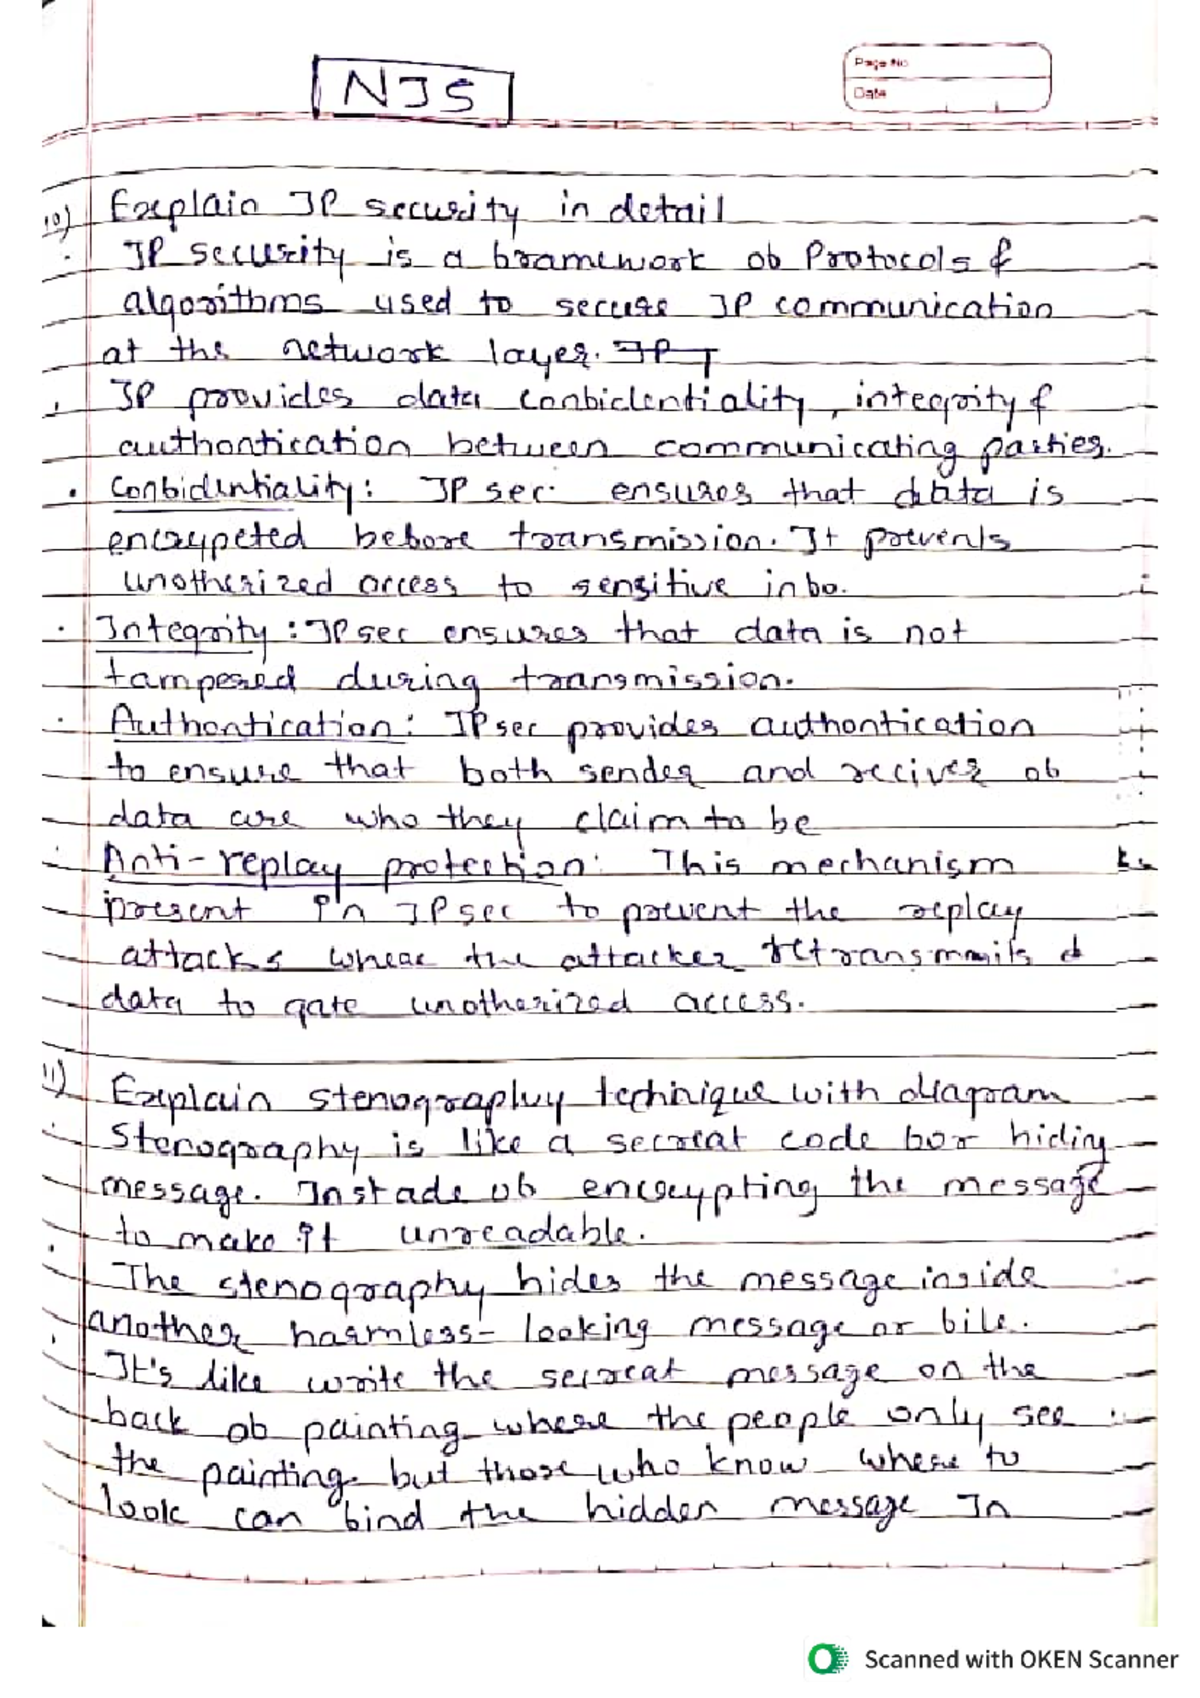 NIS
Page No
Date
10) Explain IP security in detail
· IP security is a framework of Protocols &
algorithms used to secure IP communication
at the network layer. IP T
· IP provides data confidentiality, integrity &
authontication between communicating parties.
· Confidentiality: IP sec. ensures that data is
encrypeted before transmission. It prevents
unotherized access to sensitive info.
· Integrity: IPsec ensures that data is not
tampered during transmission.
· Authontication: IPsec provides authontication
to ensure that both sender and reciver of
data are who they claim to be
· Anti-replay protection: This mechanism
present in IPsec to prevent the replay
attacks whear the attacker retransmmits
data to gate unotherized access.
11) Explain stenography technique with diagram
· Stenography is like a secreat code for hiding
message. Instade of encrypting the message
to make it unreadable.
· The stenography hides the message inside
another harmless-looking message or file.
· It's like write the secreat message on the
back of painting where the people only see
the painting but those who know where to
look can find the hidden message In
Scanned with OKEN Scanner